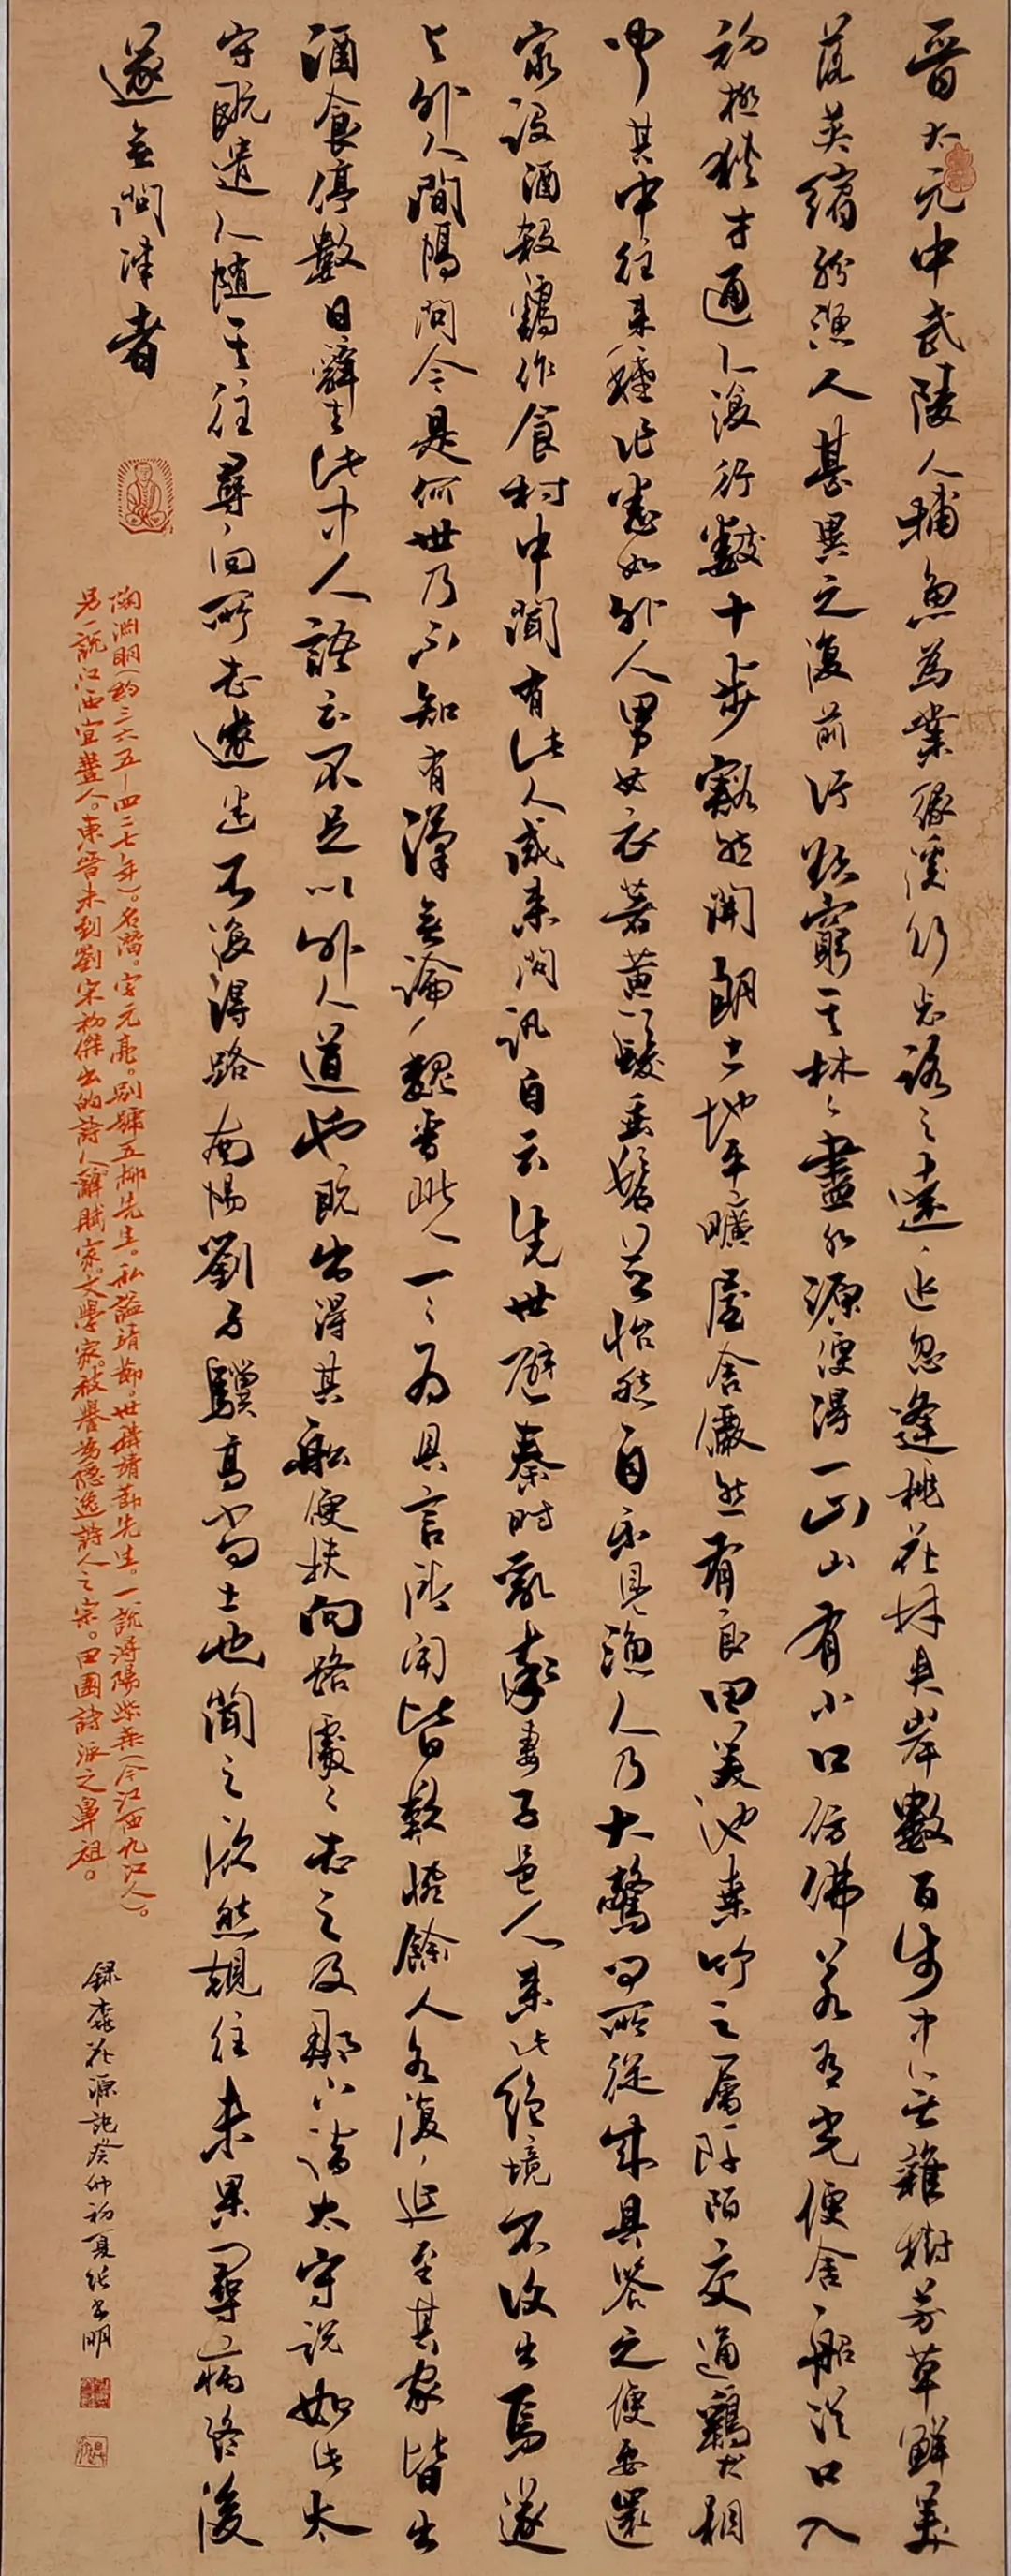 晋太元中武陵人捕魚為業緣溪行忘路之遠近忽逢桃花林夾岸數百步中無雜樹芳草鮮美
落英繽紛漁人甚異之復前行欲窮其林林盡水源便得一山山有小口仿佛若有光便舍船從口入
初極狹才通人復行數十步豁然開朗土地平曠屋舍儼然有良田美池桑竹之屬阡陌交通鷄犬相
聞其中往来種作悉如外人男女衣著黄髮垂髫並怡然自樂見漁人乃大驚問所從来具答之便要還
家設酒殺鷄作食村中聞有此人咸来問訊自云先世避秦時亂率妻子邑人来此絶境不復出焉遂
与外人間隔問今是何世乃不知有漢無論魏晋此人一一為具言所聞皆歎惋餘人各復延至其家皆出
酒食停數日辭去此中人語云不足以外人道也既出得其船便扶向路處處志之及郡下詣太守説如此太
守既遣人随其往尋向所志遂迷不復得路南陽劉子驥高尚士也聞之欣然規往未果尋病終後
遂無問津者
陶渊明(約三六五-四二七年)。名潜。字元亮。别號五柳先生。私謚靖節。世稱靖節先生。一説潯陽柴桑(今江西九江人)。
另一説江西宜豐人。東晋末到劉宋初傑出的詩人。辭賦家。文學家。被譽為隐逸詩人之宗。田園詩派之鼻祖。
録桃花源記癸卯初夏 明